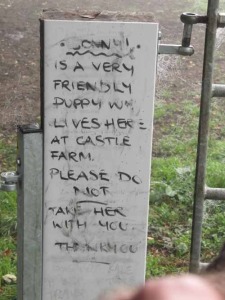 JONNY!
IS A VERY
FRIENDLY
PUPPY WH
LIVES HERE
AT CASTLE
FARM.
PLEASE DO
NOT
TAKE HER
WITH YOU.
THANKYOU